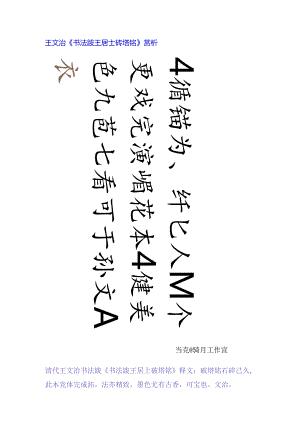 王文治《书法跋王居士砖塔铭》赏析
4循锚为、纤匕人M个
更戏完演嵋花本4健美
色九芭七看可于孙文A
衣
当克@骑月工作宣
清代王文治书法跋《书法跋王居上破塔铭》释文：破塔铭石碎己久，
此本竞体完成拓，法亦精致，墨色尤有古香，可宝也。文治，